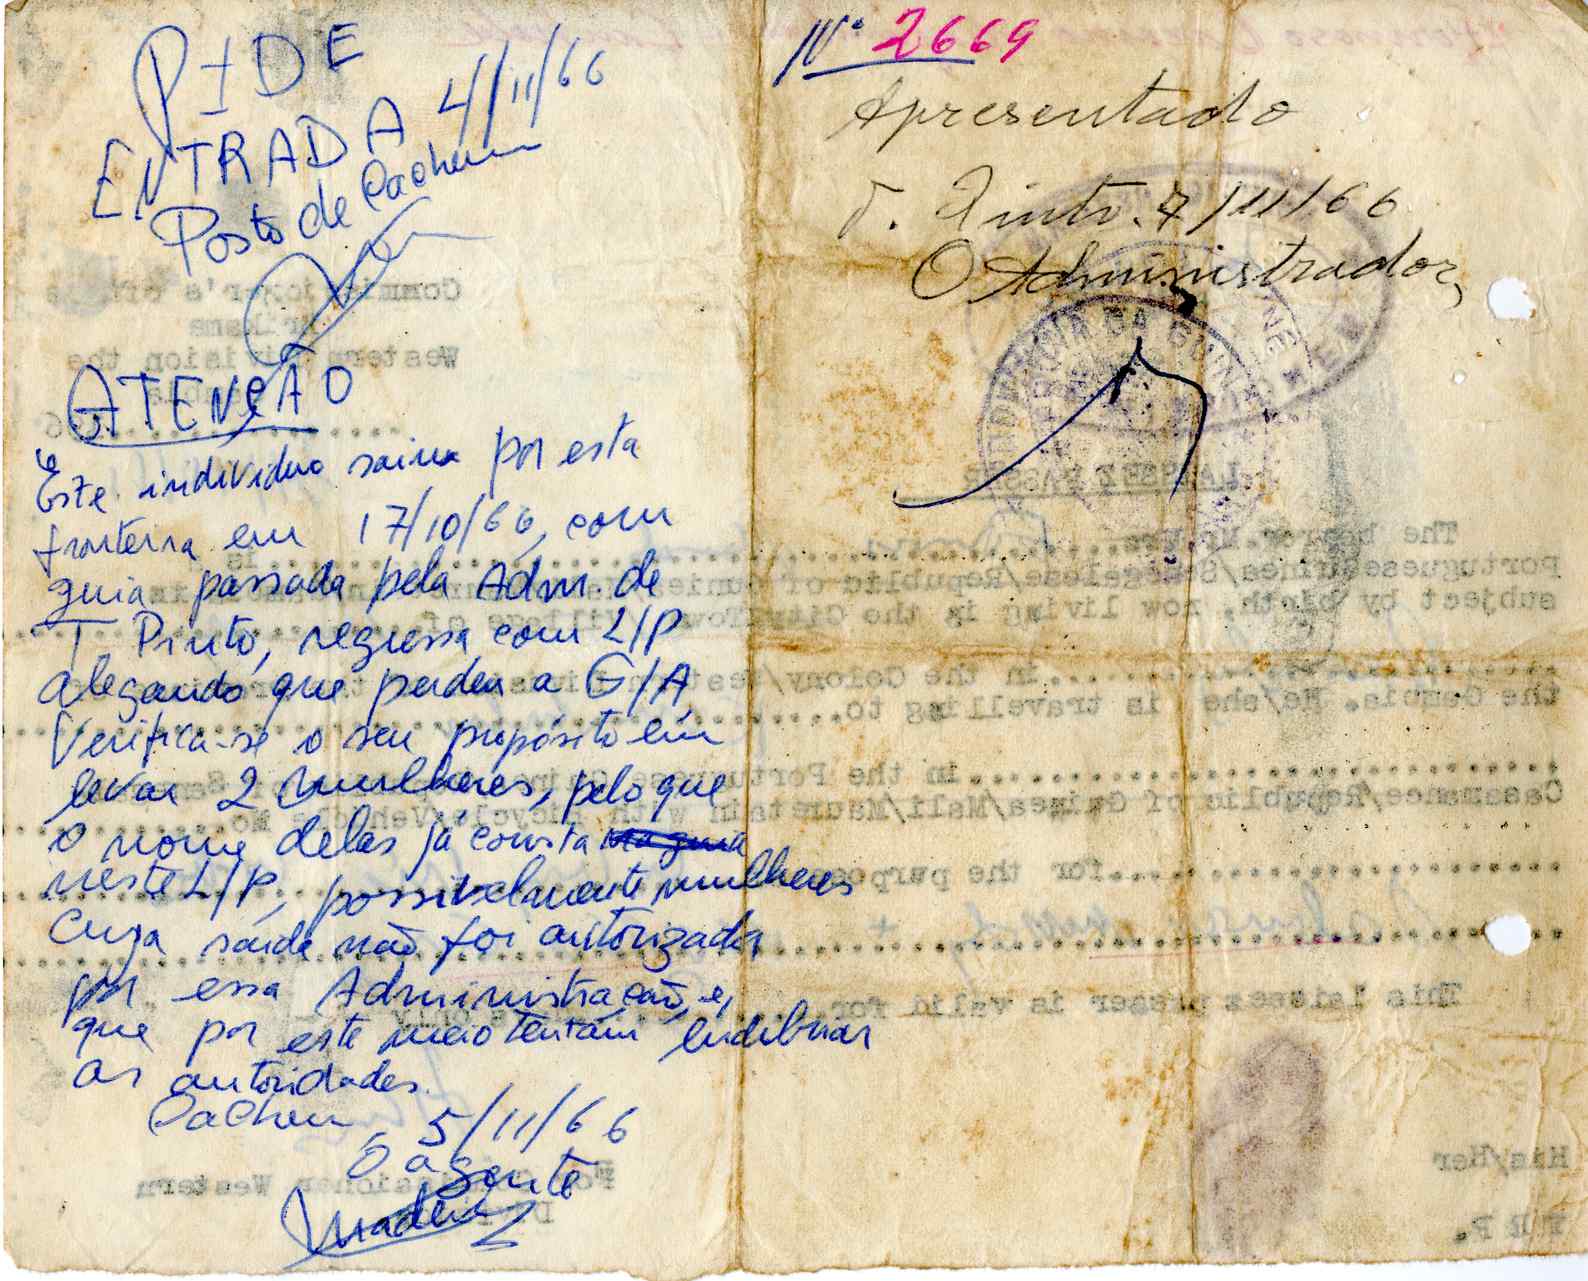 PIDE
ENTRADA 4/11/66
Posto de Cacheu
ATENÇÃO
Este individuo saiu por esta
fronteira em 17/10/66, com
guia passada pela Adm de
T. Pinto, regressa com L/P
alegando que perdeu a G/A
Verifica-se o seu propósito em
levar 2 mulheres, pelo que
o nome delas já consta na guia
neste L/P, possivelmente mulheres
cuja saída não foi autorizada
por essa Administração, e,
que por este meio tentam ludibriar
as autoridades.
Cacheu, 5/11/66
O agente
Nº 2669
Apresentado
T. Pinto. 7/11/66
O Administrador,
PROVINCIA DA GUINÉ
Commissioner's Office
Brikama
Western Division the
LAISSEZ PASSER
The bearer Mr. Mrs
Portuguese Guinea/Senegalese/Republic of Guinea
subject by birth, now living in the City/Town/Village of
in the Colony/Western Division
the Gambia. He/she is travelling to
in the Portuguese Guinea
Casamance/Republic of Guinea/Mali/Mauretain with Bicycle/Vehicle No.
for the purpose
This laissez passer is valid for only
For Commissioner Western
His/Her